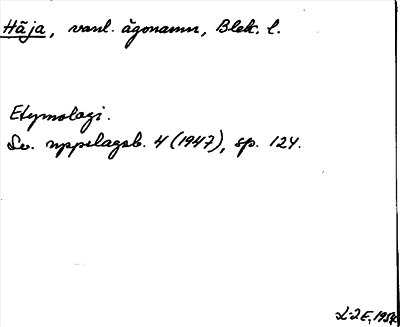 Häja, vanl. ägonamn, Blek. l.
Etymologi.
Sv. uppslagsb. 4 (1947), sp. 124.